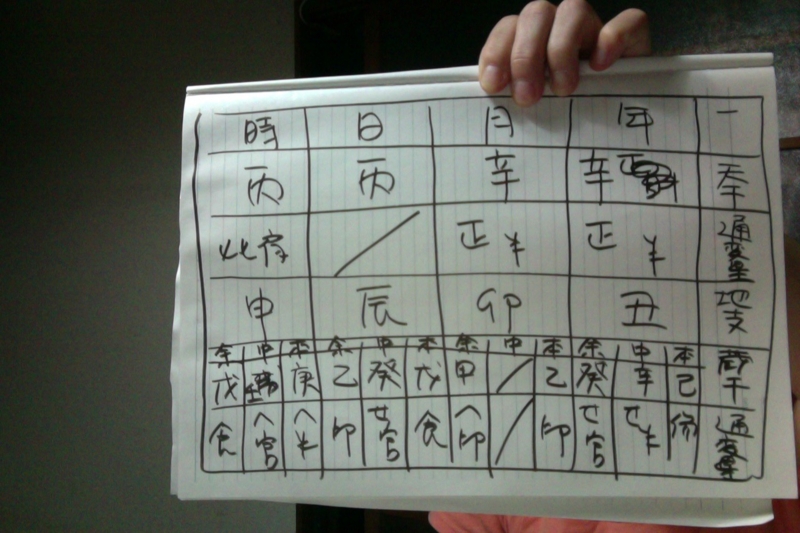 時 日 月 年 一
丙 丙 辛 辛 正 天干
比肩 / 正 半 正 半 通変星
申 辰 卯 丑 地支
余 中 本 余 中 本 余 中 本 余 中 本 蔵干
戊 壬 庚 乙 癸 戊 甲 / 乙 癸 辛 己
食 へ官 へ半 印 せ官 食 へ印 / 印 せ官 せ半 傷 通変星